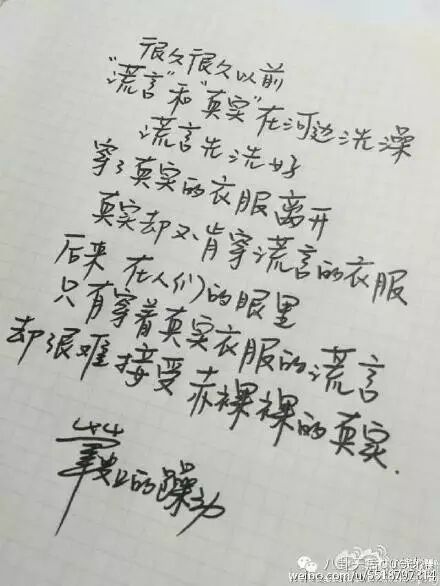 很久很久以前
“谎言”和“真实”在河边洗澡
谎言先洗好
穿了真实的衣服离开
真实却不肯穿谎言的衣服
后来 在人们的眼里
只有穿着真实衣服的谎言
却很难接受赤裸裸的真实.
的躁动
weibo.com/u/5518797344